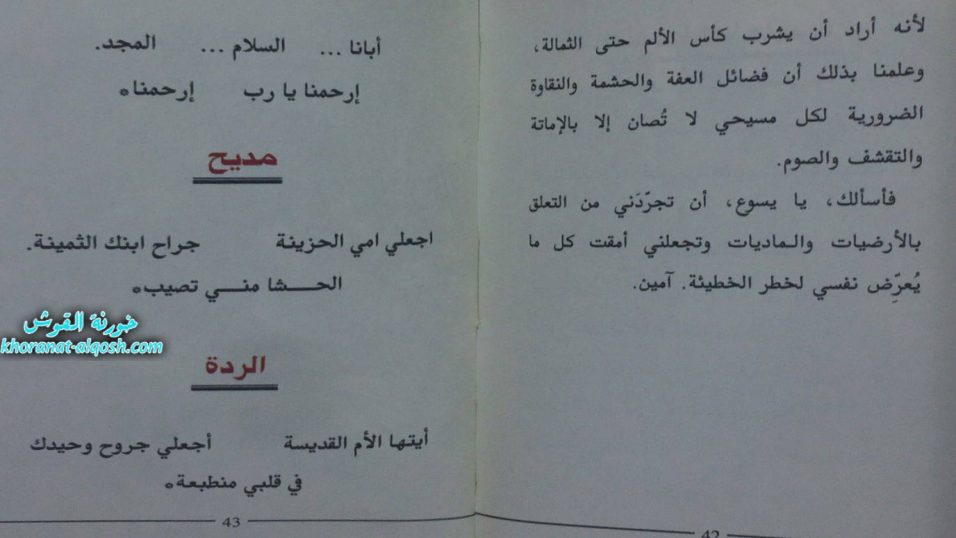 لأنه أراد أن يشرب كأس الألم حتى الثمالة،
وعلمنا بذلك أن فضائل العفة والحشمة والنقاوة
الضرورية لكل مسيحي لا تُصان إلا بالإماتة
والتقشف والصوم.
فأسألك، يا يسوع، أن تجرّدَني من التعلق
بالأرضيات والماديات وتجعلني أمقت كل ما
يُعرِّض نفسي لخطر الخطيئة. آمين.
42
أبانا ... السلام ... المجد.
إرحمنا يا رب إرحمنا*
مديح
اجعلي امي الحزينة جراح ابنك الثمينة.
الحــشا منــي تصيب*
الردة
أيتها الأم القديسة أجعلي جروح وحيدك
في قلبي منطبعة*
43
خورنة القوش
khoranat-alqosh.com